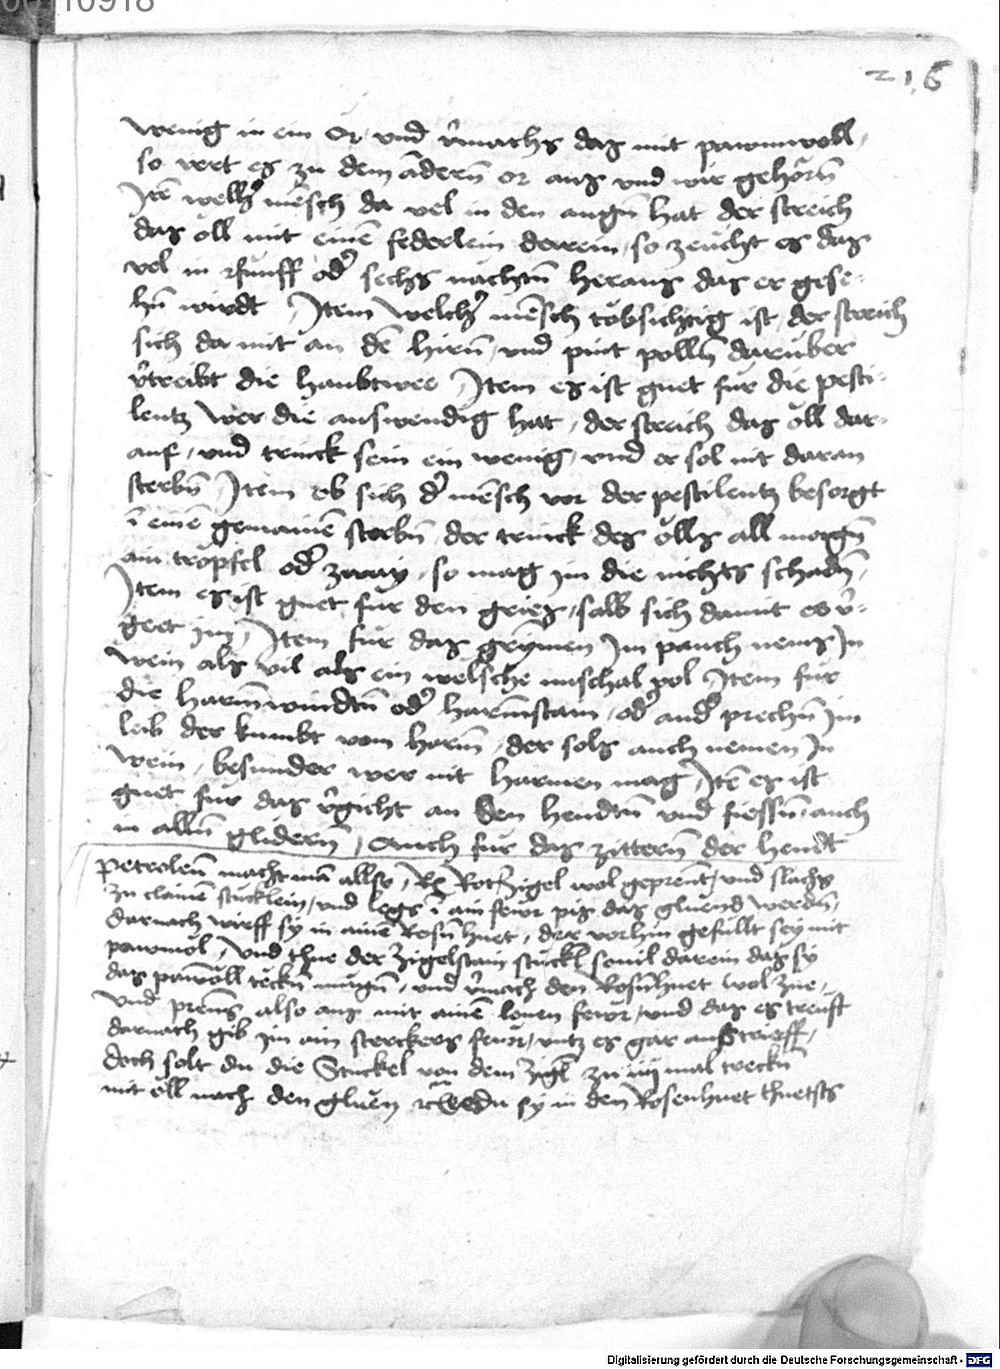 00110918
216
wenig in ein Or / und v̉machs das mit pawmwoll /
so vert es zu dem andern̄ or aus und wir gehorn̄
Itē welh̉ mēsch da vel in den augn̄ hat der streich
das öll mit einē federlein darein / so zeucht es das
vel in funff od̉ sechs nachtn̄ heraus das er gese-
hn̄ wirdt / Item welch̉ mēsch tobsichtig ist / der streich
sich da mit an dē hirn̄ / und pint pollē daruber
v̉treibt die haubtwee / Item es ist guet fur die pesti-
lentz wer die auswendig hat / der streich das öll dar-
auf / und trinck sein ein wenig / und er sol nit daran
sterbn̄ / Item ob sich d̉ mēsch vor der pestilentz besorgt
ī einē gemainē sterbn̄ der trinck des ölls all morgn̄
ain tropfel od̉ zway / so mag im die nichts schadn̄ /
Item es ist guet fur den gries / salb sich damit es v̉-
geet im / Item fur das grymen Im pauch nems In
wein als vil als ein welsche nuschal vol Item fur
die harm̄windtn̄ od̉ harm̄stain / od̉ and̉ prechn̄ Im
leib der kumbt vom harm̄ / der sols auch nemen In
wein / besunder wer nit harmen mag / Itē es ist
guet fur das v̉gicht an den hendtn̄ und fiessn̄ / auch
in alln̄ glidern̄ / Auch fur das zittern̄ der hendt
petroleū macht man allso / Rx Rot zigel wol geprent / und slachs
zu clainē stucklein / und legs ī ain fewr pis das gluend werdn̄ /
darnach wirff sy in ainē Rosn̄huet / der vorhin gefullt sey mit
pawmöl / und thue der zigelstain stuckl souil darein das sy
das pawöll teckn̄ mugn̄ / und v̉mach den Rosn̄huet wol zue /
und prens also aus mit ainē lenen fewr / und das es treuft
darnach gib im ain sterckers fewr / untz es gar aus trieff /
doch solt du die Stuckel von dem zigl zu iiij mal treckn̄
mit öll nach den gluen ee du sy in den Rosenhuet thuetsts
Digitalisierung gefördert durch die Deutsche Forschungsgemeinschaft - DFG